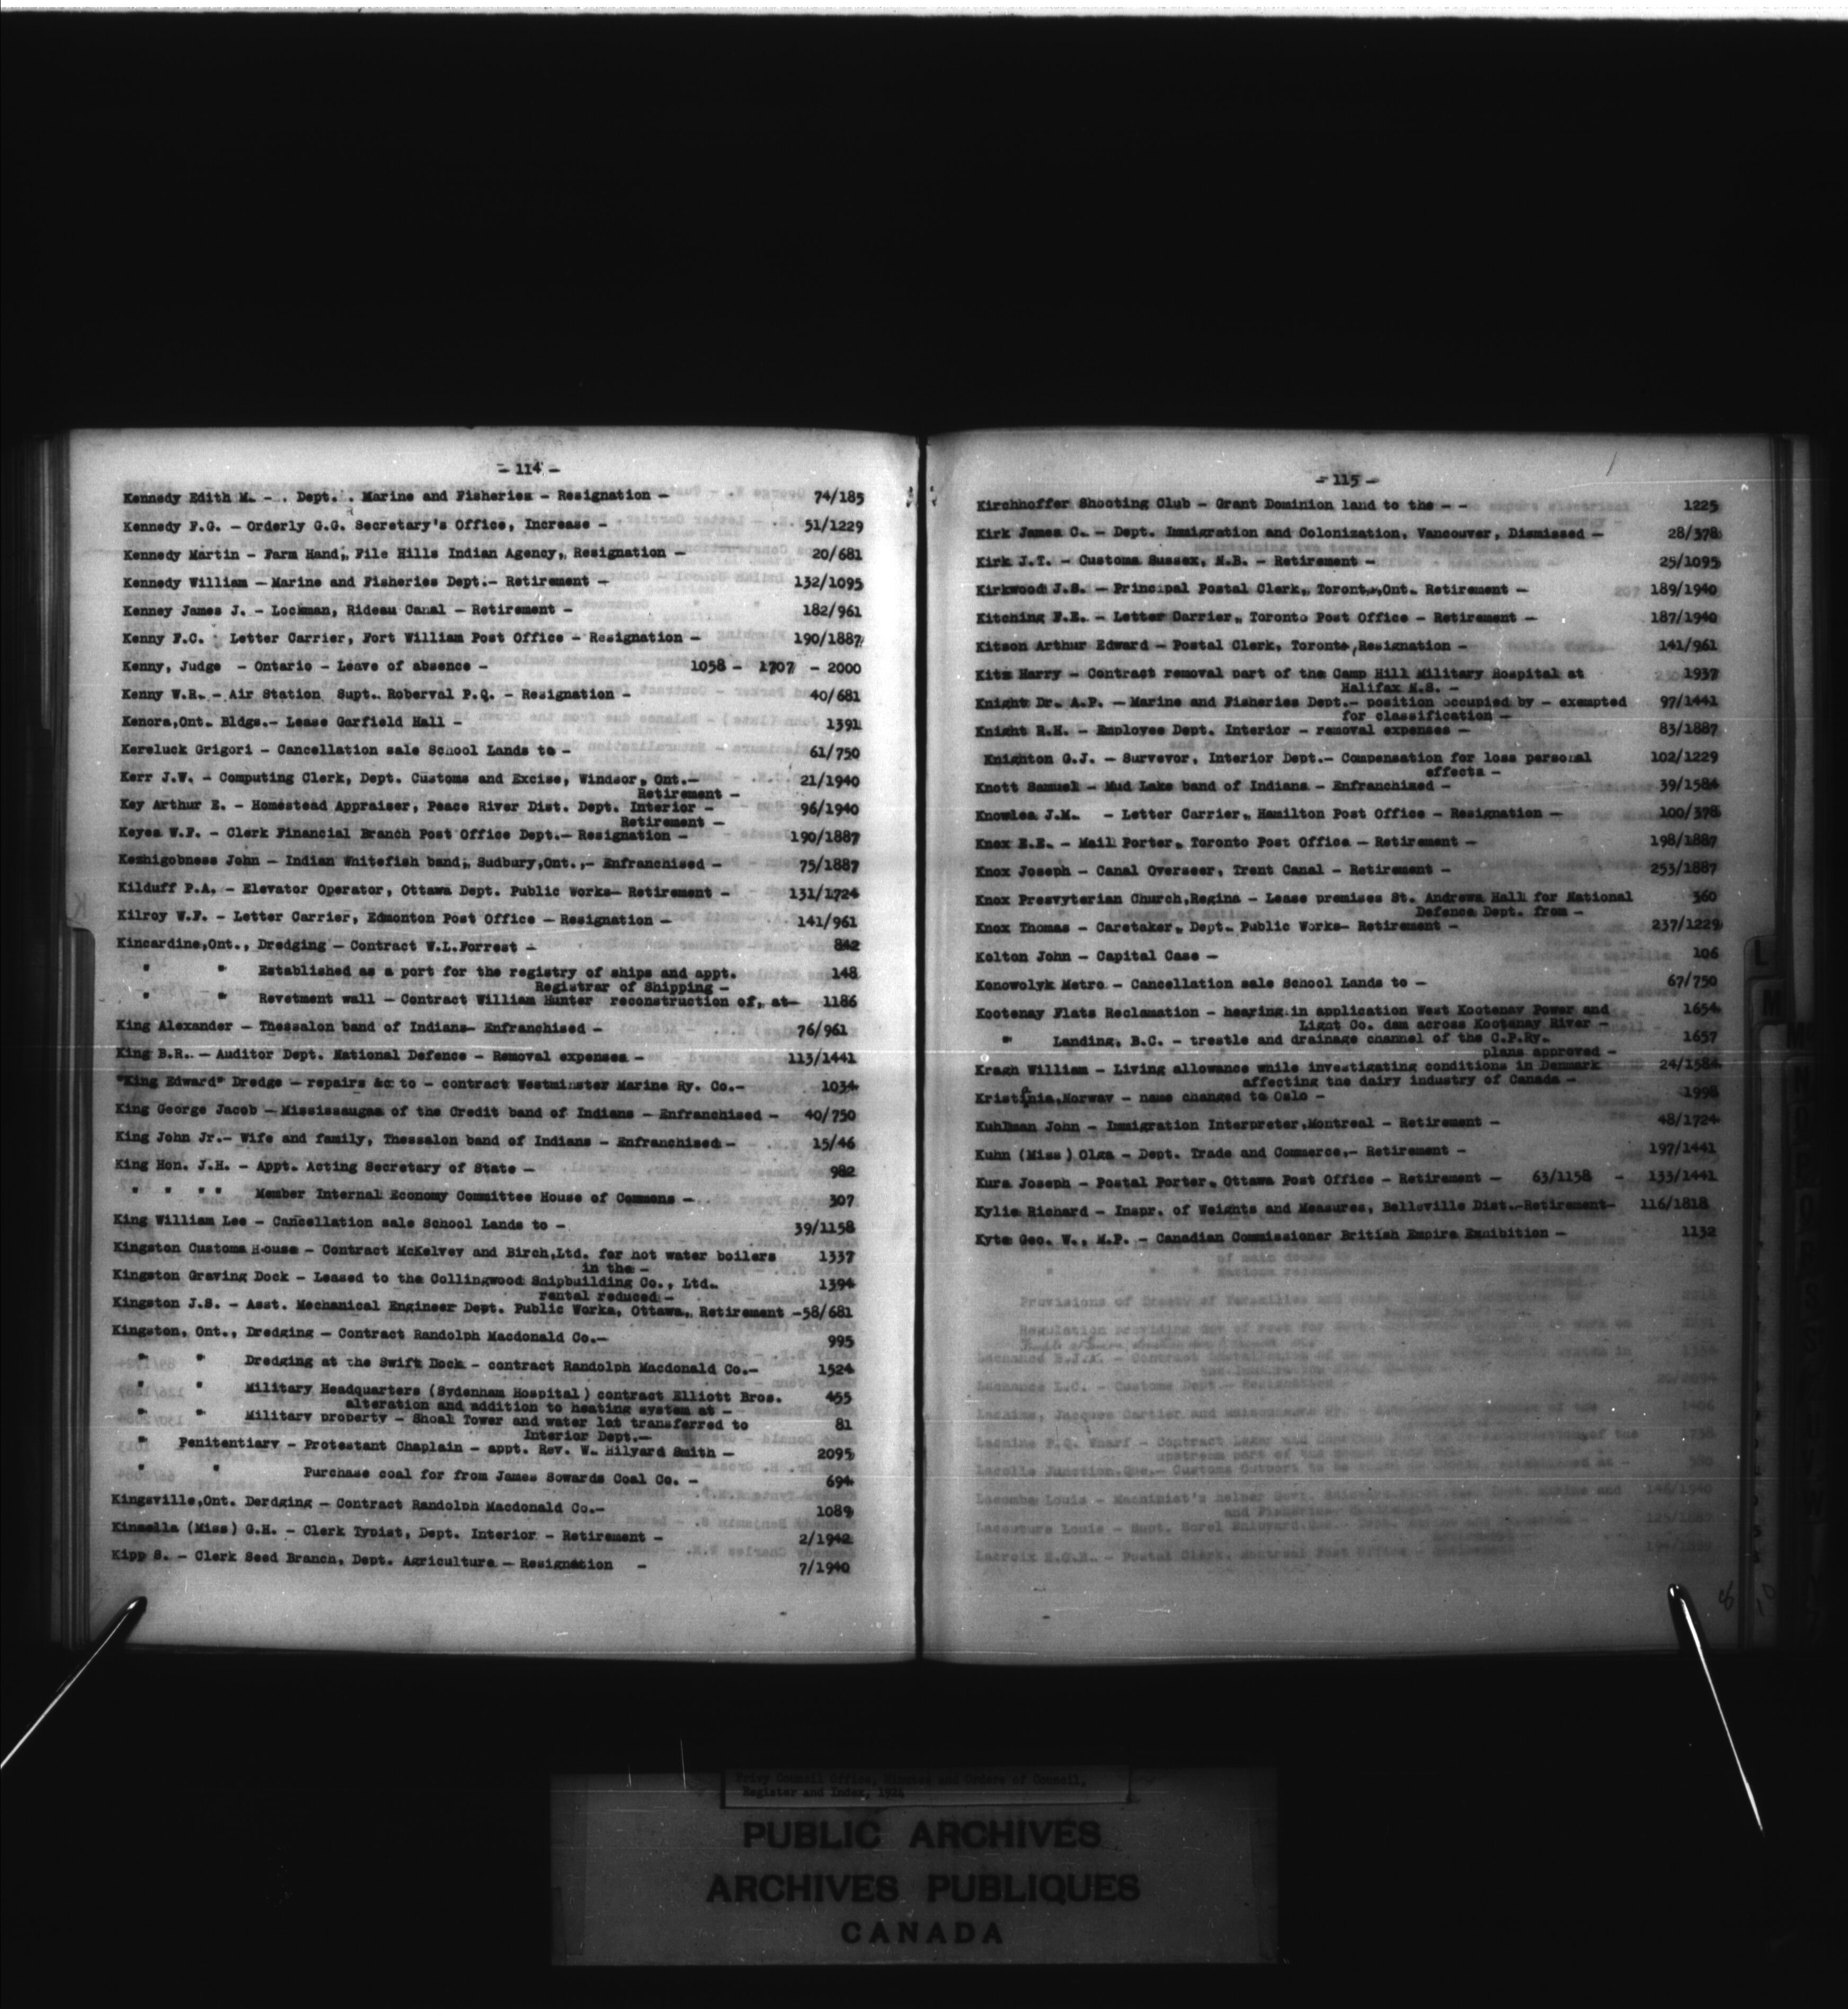 - 114 -
Kennedy Edith M. - . Dept. . Marine and Fisheries - Resignation - 74/185
Kennedy F.G. - Orderly G.G. Secretary's Office, Increase - 51/1229
Kennedy Martin - Farm Hand, File Hills Indian Agency, Resignation - 20/681
Kennedy William - Marine and Fisheries Dept.- Retirement - 132/1095
Kenney James J. - Lockman, Rideau Canal - Retirement - 182/961
Kenny F.C. Letter Carrier, Fort William Post Office - Resignation - 190/1887
Kenny, Judge - Ontario - Leave of absence - 1058 - 1707 - 2000
Kenny W.R. - Air Station Supt. Roberval P.Q. - Resignation - 40/681
Kenora,Ont. Bldgs.- Lease Garfield Hall - 1391
Kereluck Grigori - Cancellation sale School Lands to - 61/750
Kerr J.W. - Computing Clerk, Dept. Customs and Excise, Windsor, Ont.- 21/1940
Retirement -
Key Arthur E. - Homestead Appraiser, Peace River Dist. Dept. Interior - 96/1940
Retirement -
Keyes W.F. - Clerk Financial Branch Post Office Dept.- Resignation - 190/1887
Kezhigobness John - Indian Whitefish band, Sudbury,Ont.,- Enfranchised - 75/1887
Kilduff P.A. - Elevator Operator, Ottawa Dept. Public Works- Retirement - 131/1724
Kilroy W.F. - Letter Carrier, Edmonton Post Office - Resignation - 141/961
Kincardine,Ont., Dredging - Contract W.L.Forrest - 842
" " Established as a port for the registry of ships and appt. 148
Registrar of Shipping -
" " Revetment wall - Contract William Hunter reconstruction of, at- 1186
King Alexander - Thessalon band of Indians- Enfranchised - 76/961
King B.R. - Auditor Dept. National Defence - Removal expenses - 113/1441
"King Edward" Dredge - repairs &c to - contract Westminster Marine Ry. Co.- 1034
King George Jacob - Mississaugas of the Credit band of Indians - Enfranchised - 40/750
King John Jr.- Wife and family, Thessalon band of Indians - Enfranchised - 15/46
King Hon. J.H. - Appt. Acting Secretary of State - 982
" " " " Member Internal Economy Committee House of Commons - 307
King William Lee - Cancellation sale School Lands to - 39/1158
Kingston Customs House - Contract McKelvey and Birch,Ltd. for hot water boilers 1337
in the -
Kingston Graving Dock - Leased to the Collingwood Shipbuilding Co., Ltd. 1394
rental reduced -
Kingston J.S. - Asst. Mechanical Engineer Dept. Public Works, Ottawa, Retirement -58/681
Kingston, Ont., Dredging - Contract Randolph Macdonald Co.- 995
" " Dredging at the Swift Dock - contract Randolph Macdonald Co.- 1524
" " Military Headquarters (Sydenham Hospital) contract Elliott Bros. 455
alteration and addition to heating system at -
" " Military property - Shoal Tower and water lot transferred to 81
Interior Dept.-
" Penitentiary - Protestant Chaplain - appt. Rev. W. Hilyard Smith - 2095
" " Purchase coal for from James Sowards Coal Co. - 694
Kingsville,Ont. Derdging - Contract Randolph Macdonald Co.- 1089
Kinsella (Miss) G.H. - Clerk Typist, Dept. Interior - Retirement - 2/1942
Kipp S. - Clerk Seed Branch, Dept. Agriculture - Resignation - 7/1940
- 115 -
Kirchhoffer Shooting Club - Grant Dominion land to the - - 1225
Kirk James C. - Dept. Immigration and Colonization, Vancouver, Dismissed - 28/378
Kirk J.T. - Customs Sussex, N.B. - Retirement - 25/1095
Kirkwood J.S. - Principal Postal Clerk, Toronto,Ont. Retirement - 189/1940
Kitching F.E. - Letter Carrier, Toronto Post Office - Retirement - 187/1940
Kitson Arthur Edward - Postal Clerk, Toronto,Resignation - 141/961
Kitz Harry - Contract removal part of the Camp Hill Military Hospital at 1937
Halifax N.S. -
Knight Dr. A.P. - Marine and Fisheries Dept.- position occupied by - exempted 97/1441
for classification -
Knight R.H. - Employee Dept. Interior - removal expenses - 83/1887
Knighton G.J. - Surveyor, Interior Dept.- Compensation for loss personal 102/1229
effects -
Knott Samuel - Mud Lake band of Indians - Enfranchised - 39/1584
Knowles J.M. - Letter Carrier, Hamilton Post Office - Resignation - 100/378
Knox E.E. - Mail Porter, Toronto Post Office - Retirement - 198/1887
Knox Joseph - Canal Overseer, Trent Canal - Retirement - 253/1887
Knox Presvyterian Church,Regina - Lease premises St. Andrews Hall for National 360
Defence Dept. from -
Knox Thomas - Caretaker, Dept. Public Works- Retirement - 237/1229
Kolton John - Capital Case - 106
Konowolyk Metro - Cancellation sale School Lands to - 67/750
Kootenay Flats Reclamation - hearing in application West Kootenay Power and 1654
Light Co. dam across Kootenay River -
" Landing, B.C. - trestle and drainage channel of the C.P.Ry. 1657
plans approved -
Kragh William - Living allowance while investigating conditions in Denmark 24/1584
affecting the dairy industry of Canada -
Kristinia,Norway - name changed to Oslo - 1998
Kuhlman John - Immigration Interpreter,Montreal - Retirement - 48/1724
Kuhn (Miss) Olga - Dept. Trade and Commerce,- Retirement - 197/1441
Kura Joseph - Postal Porter, Ottawa Post Office - Retirement - 63/1158 - 133/1441
Kylie Richard - Inspr. of Weights and Measures, Belleville Dist.-Retirement- 116/1818
Kyte Geo. W., M.P. - Canadian Commissioner British Empire Exhibition - 1132
L
M
Privy Council Office, Minutes and Orders of Council,
Register and Index, 1924
PUBLIC ARCHIVES
ARCHIVES PUBLIQUES
CANADA